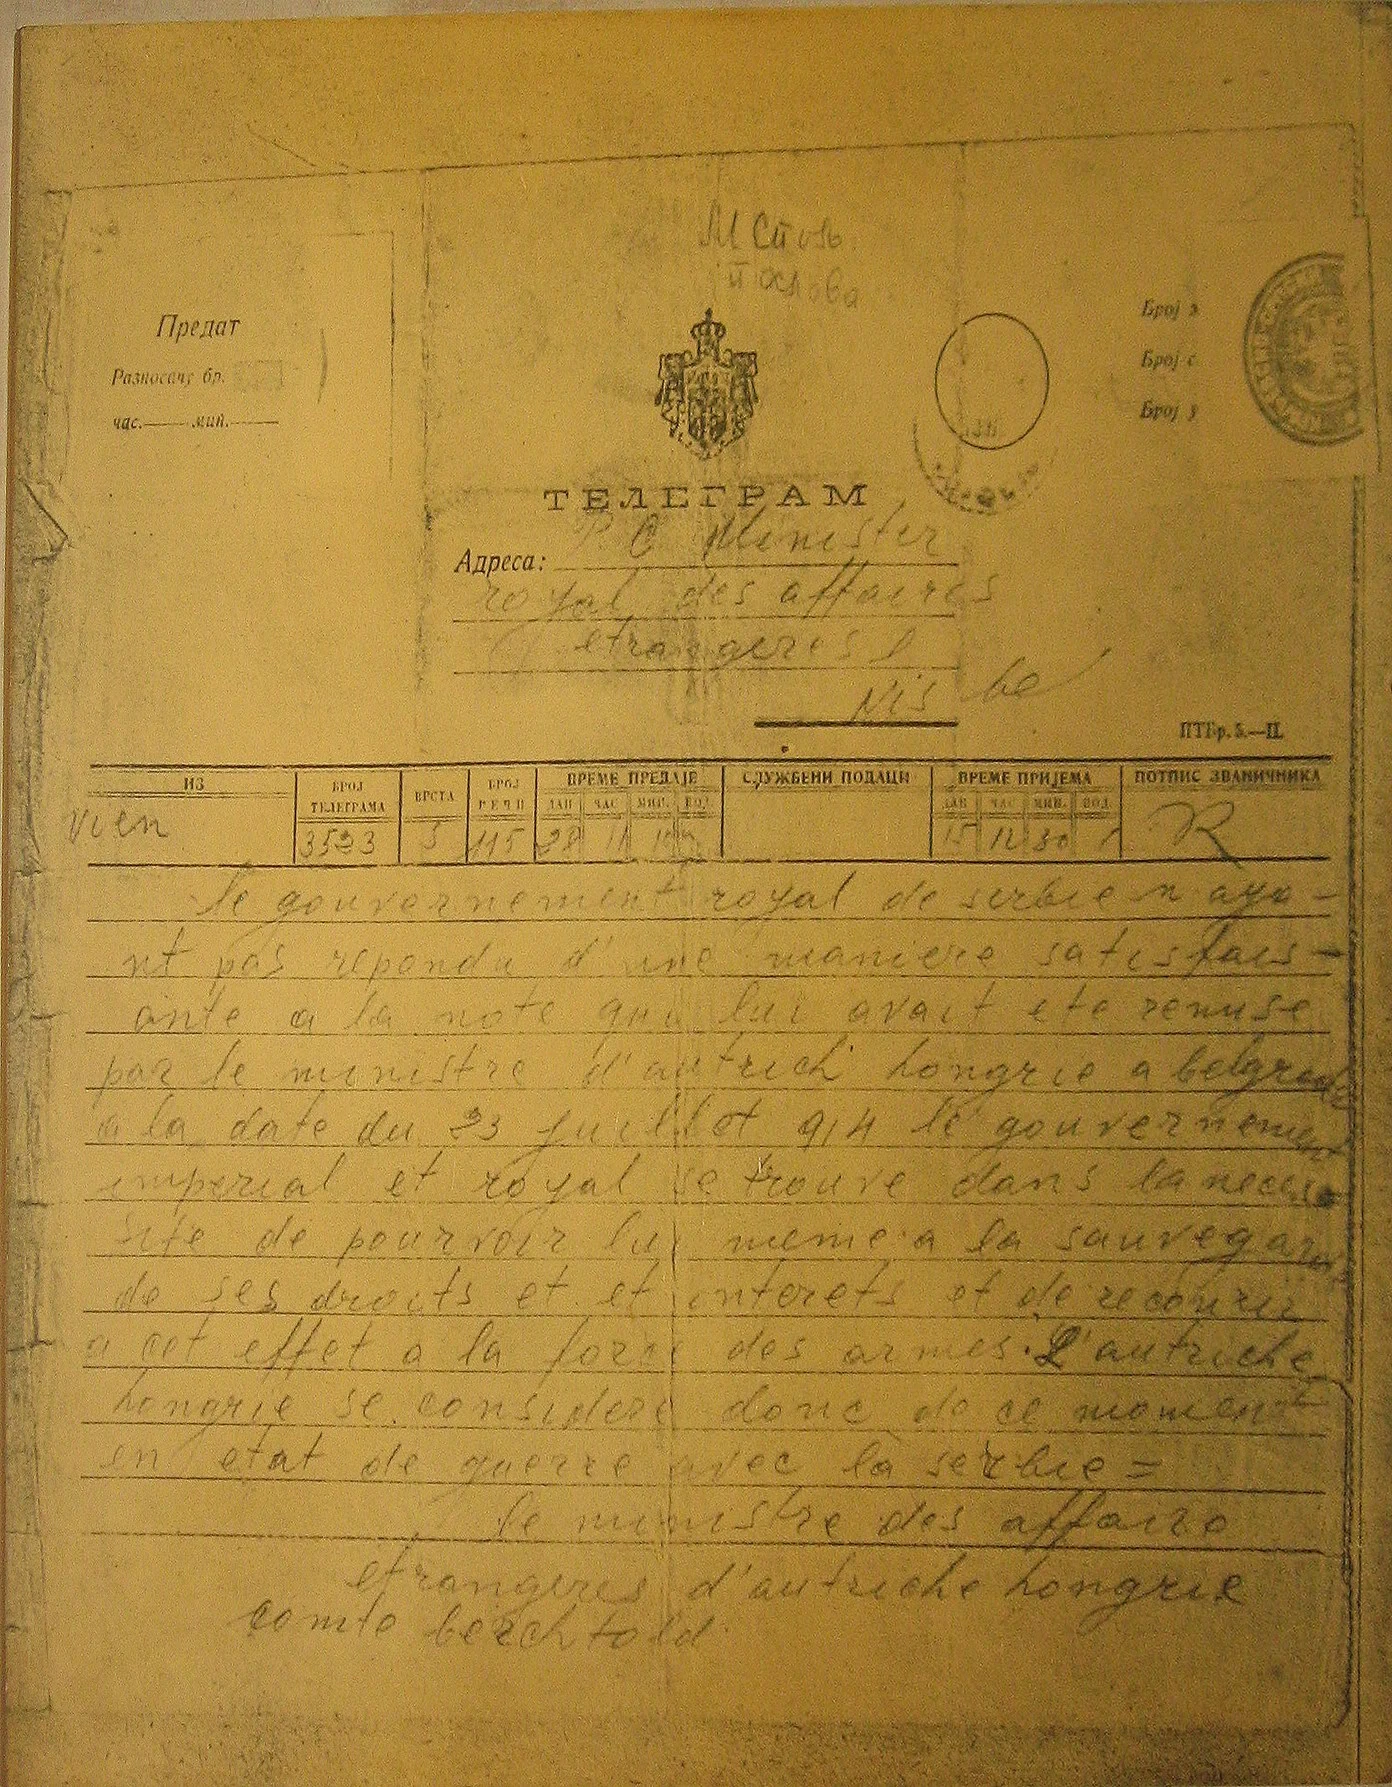 М Спољ.
послова
Предат
Разносачу бр.
час. мин.
Број
Број с
Број
ТЕЛЕГРАМ
Адреса: Minister
royal des affaires
etrangeres
Nis be
ПТБр. 5.—II.
ИЗ БРОЈ ТЕЛЕГРАМА ВРСТА БРОЈ РЕЧИ ВРЕМЕ ПРЕДАЈЕ СЛУЖБЕНИ ПОДАЦИ ВРЕМЕ ПРИЈЕМА ПОТПИС ЗВАНИЧНИКА
ДАН ЧАС МИН. ПОД. ДАН ЧАС МИН. ПОД.
vien 3523 5 115 28 11 10 15 12 30 R
le gouvernement royal de serbie n aya-
nt pas repondu d'une maniere satisfais-
ante a la note qui lui avait ete remise
par le ministre d'autrich hongrie a belgrade
a la date du 23 juillet 914 le gouvernement
imperial et royal se trouve dans la neces
site de pourvoir lui meme a la sauvegarde
de ses droits et et interets et de recourir
a cet effet a la force des armes. L'autriche
hongrie se considere donc de ce moment
en etat de guerre avec la serbie =
le ministre des affaire
etrangeres d'autriche hongrie
comte berchtold